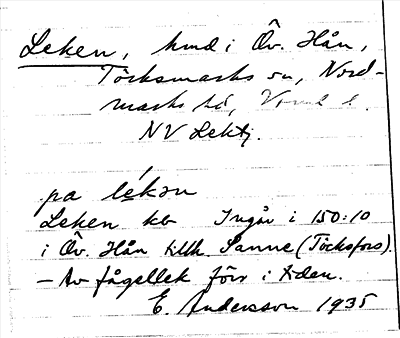 Leken, hmd i Öv. Hån,
Töcksmarks sn, Nord-
marks hd, Vrml l.
NV Lektj.
pa lékɔn
Leken kb Ingår i 150:10
i Öv. Hån tillh. Sanne (Töcksfors).
– Av fågellek förr i tiden.
E. Andersson 1935